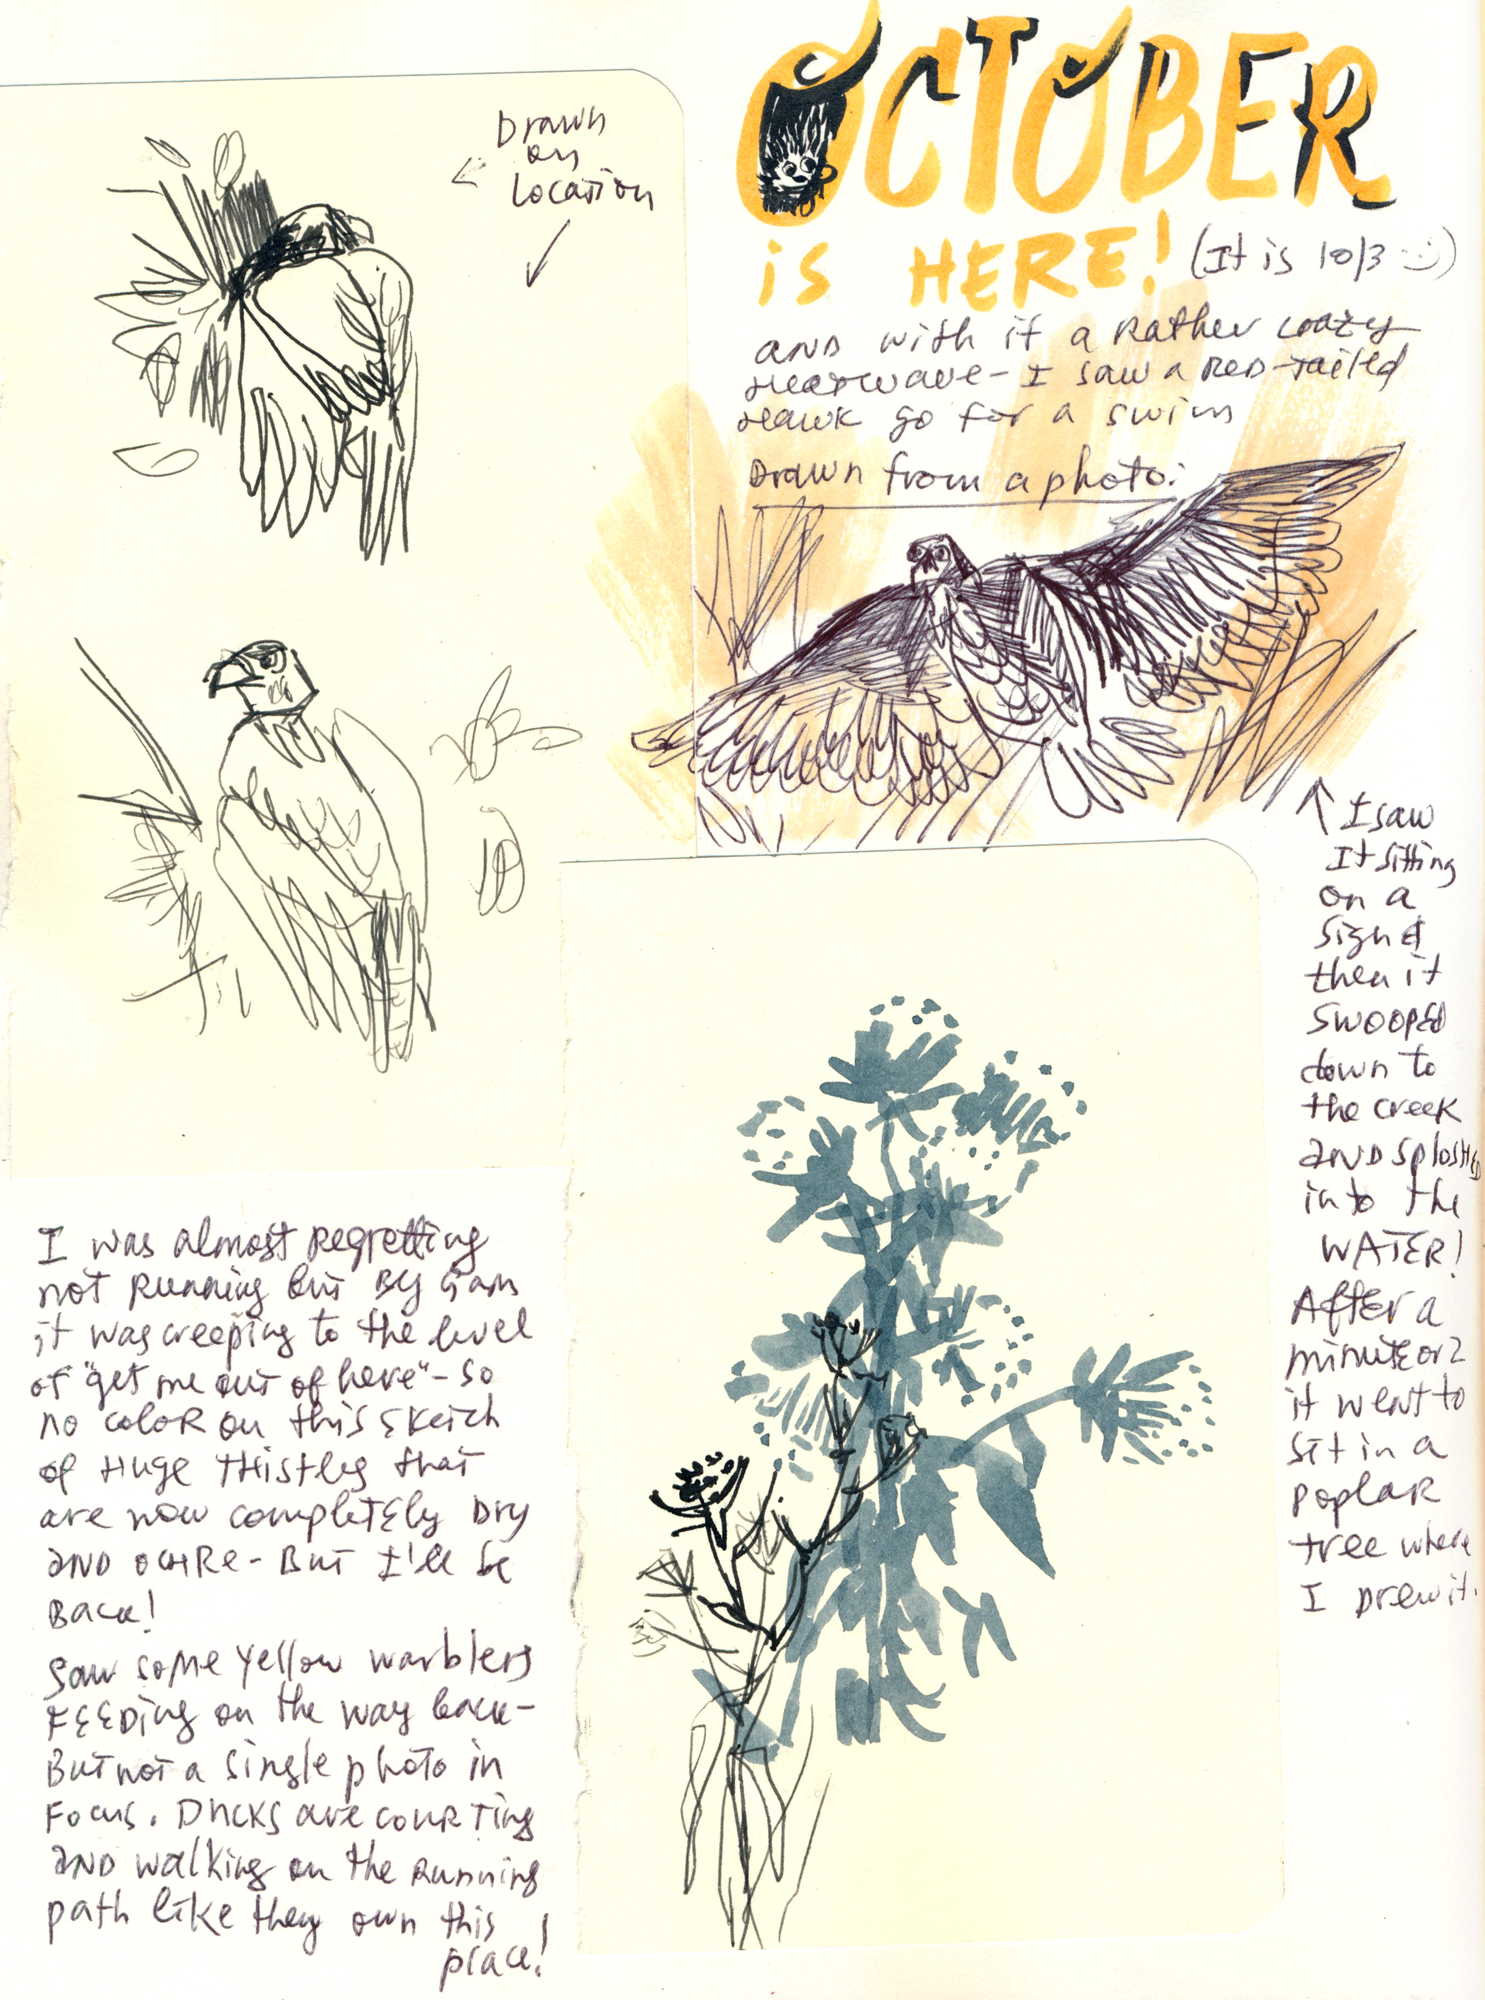 Drawn
on
location
OCTOBER
is HERE! (It is 10/3 :-))
and with it a rather crazy
heatwave - I saw a red-tailed
hawk go for a swim
Drawn from a photo:
I saw
It sitting
on a
sign &
then it
swooped
down to
the creek
and splashed
into the
WATER!
After a
minute or 2
it went to
sit in a
poplar
tree where
I drew it.
I was almost regretting
not running but by 9am
it was creeping to the level
of "get me out of here" - so
no color on this sketch
of Huge Thistles that
are now completely dry
and ochre - But I'll be
Back!
Saw some yellow warblers
FEEDing on the way back -
But not a single photo in
Focus. Ducks are courting
and walking on the running
path like they own this
place!